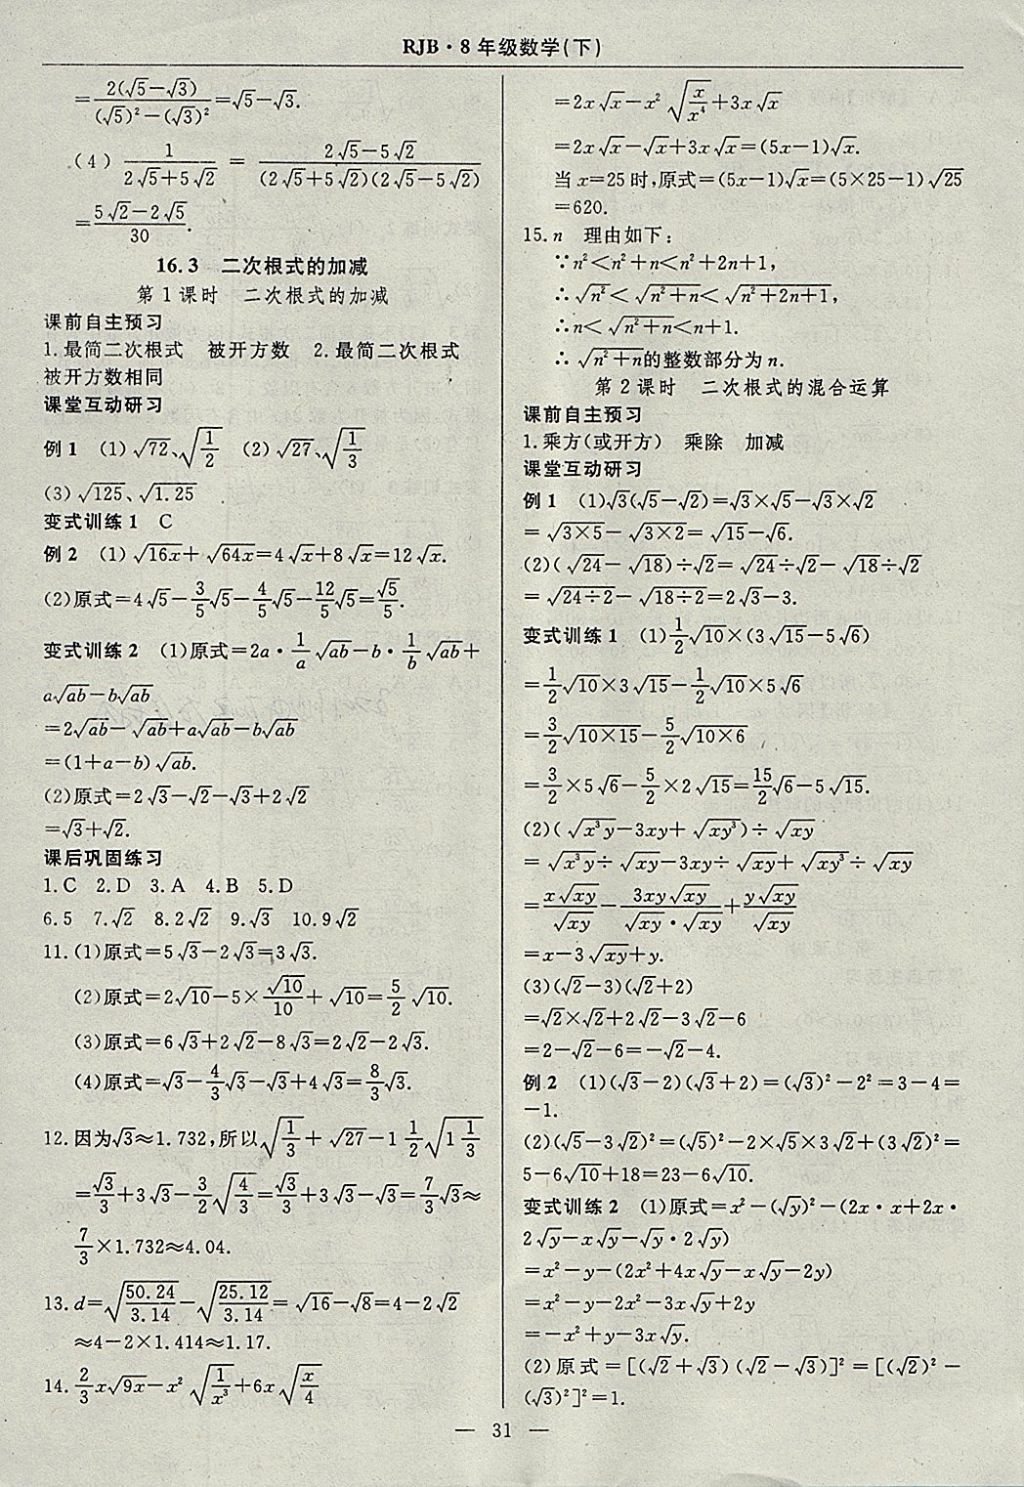 RJB·8年级数学(下)
=2(√5-√3)/((√5)²-(√3)²)=√5-√3.
(4) 1/(2√5+5√2) = (2√5-5√2)/((2√5+5√2)(2√5-5√2))
=(5√2-2√5)/30.
16.3 二次根式的加减
第1课时 二次根式的加减
课前自主预习
1.最简二次根式 被开方数 2.最简二次根式
被开方数相同
课堂互动研习
例1 (1)√72、√(1/2) (2)√27、√(1/3)
(3)√125、√1.25
变式训练1 C
例2 (1)√16x+√64x=4√x+8√x=12√x.
(2)原式=4√5-3/5√5-4/5√5-12/5√5=√5/5.
变式训练2 (1)原式=2a·1/a√ab-b·1/b√ab+
a√ab-b√ab
=2√ab-√ab+a√ab-b√ab
=(1+a-b)√ab.
(2)原式=2√3-√2-√3+2√2
=√3+√2.
课后巩固练习
1.C 2.D 3.A 4.B 5.D
6.5 7.√2 8.2√2 9.√3 10.9√2
11.(1)原式=5√3-2√3=3√3.
(2)原式=2√10-5×√10/10+√10=5/2√10.
(3)原式=6√3+2√2-8√3=2√2-2√3.
(4)原式=√3-4/3√3-√3+4√3=8/3√3.
12.因为√3≈1.732,所以√(1/3)+√27-1 1/2√(1 1/3)
=√3/3+3√3-3/2√(4/3)=√3/3+3√3-√3=7/3√3≈
7/3×1.732≈4.04.
13.d=√(50.24/3.14)-√(25.12/3.14)=√16-√8=4-2√2
≈4-2×1.414≈1.17.
14.2/3x√9x-x²√(1/x³)+6x√(x/4)
=2x√x-x²√(x/x⁴)+3x√x
=2x√x-√x+3x√x=(5x-1)√x.
当x=25时,原式=(5x-1)√x=(5×25-1)√25
=620.
15.n 理由如下:
∵n²<n²+n<n²+2n+1,
∴√n²<√(n²+n)<√(n²+2n+1),
∴n<√(n²+n)<n+1.
∴√(n²+n)的整数部分为n.
第2课时 二次根式的混合运算
课前自主预习
1.乘方(或开方) 乘除 加减
课堂互动研习
例1 (1)√3(√5-√2)=√3×√5-√3×√2
=√(3×5)-√(3×2)=√15-√6.
(2)(√24-√18)÷√2=√24÷√2-√18÷√2
=√(24÷2)-√(18÷2)=2√3-3.
变式训练1 (1)1/2√10×(3√15-5√6)
=1/2√10×3√15-1/2√10×5√6
=3/2√(10×15)-5/2√(10×6)
=3/2×5√6-5/2×2√15=15/2√6-5√15.
(2)(√(x³y)-3xy+√(xy³))÷√xy
=√(x³y)÷√xy-3xy÷√xy+√(xy³)÷√xy
=x√xy/√xy-3xy√xy/(√xy·√xy)+y√xy/√xy
=x-3√xy+y.
(3)(√2-3)(√2+2)
=√2×√2+2√2-3√2-6
=2-√2-6=-√2-4.
例2 (1)(√3-2)(√3+2)=(√3)²-2²=3-4=
-1.
(2)(√5-3√2)²=(√5)²-2×√5×3√2+(3√2)²=
5-6√10+18=23-6√10.
变式训练2 (1)原式=x²-(√y)²-(2x·x+2x·
2√y-x√y-√y·2√y)
=x²-y-(2x²+4x√y-x√y-2y)
=x²-y-2x²-3x√y+2y
=-x²+y-3x√y.
(2)原式=[(√2+√3)(√2-√3)]²=[(√2)²-
(√3)²]²=1.
— 31 —